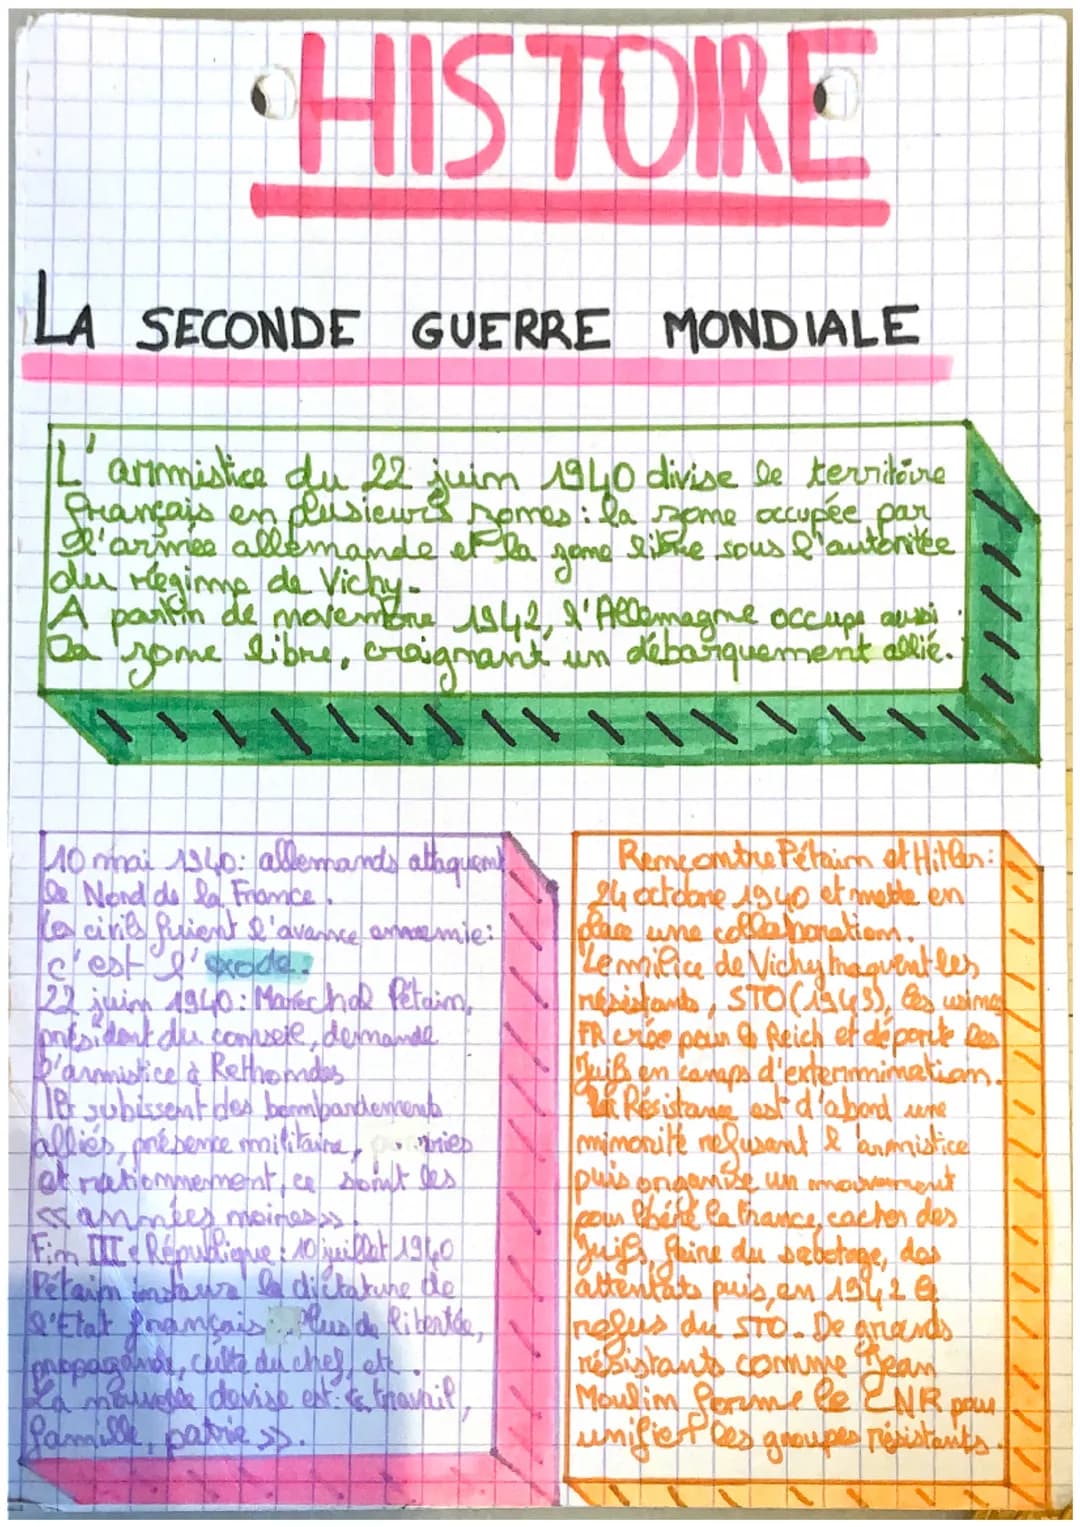 HISTOIRE
LA SECONDE GUERRE MONDIALE
L'armistice du 22 juin 1940 divise le territoire
français en plusieurs zones : la zone occupée par
l'armée allemande et la zone libre sous l'autoritée
du régime de Vichy.
A partir de novembre 1942, l'Allemagne occupe aussi
la zone libre, craignant un débarquement allié.
10 mai 1940: allemands attaquent
le Nord de la France.
Les civils fuient l'avance ennemie:
c'est l'exode.
22 juin 1940: Maréchal Pétain,
président du conseil, demande
l'armistice à Rethondes
subissent des bombardements
alliés, présence militaire,
et rationnement, ce sont les
<< années noires >>.
Fin IIIe République : 10 juillet 1940
Pétain instaure la dictature de
l'Etat français. Plus de libertée,
propagande, culte du chef, etc.
La nouvelle devise est: << travail,
famille, patrie >>.
Rencontre Pétain et Hitler:
24 octobre 1940 et mette en
place une collaboration.
Le milice de Vichy traquent les
résistants, STO (1943), les usines
FR crée pour le Reich et déporte les
Juifs en camps d'extermination.
La Résistance est d'abord une
minorité refusant l'armistice
puis organise un mouvement
pour libéré la France, cacher des
Juifs, faire du sabotage, des
attentats puis, en 1942 le
refus du STO. De grands
résistants comme Jean
Moulin forme le CNR pour
unifier les groupes résistants.